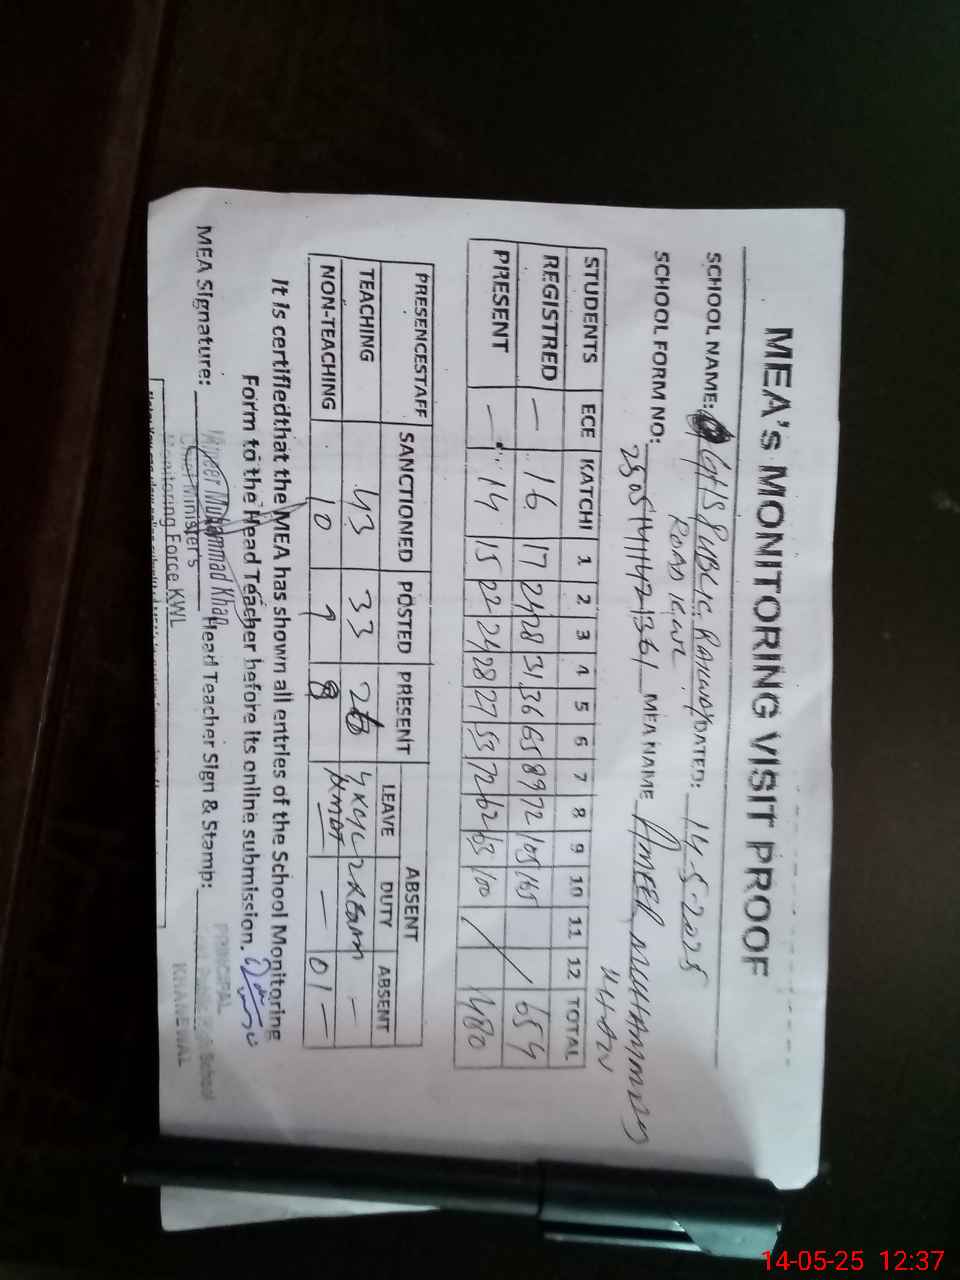 MEA's MONITORING VISIT PROOF
SCHOOL NAME: GHS PUBLIC RAILWAY DATED: 14-5-2025
ROAD KWL
SCHOOL FORM NO: MEA NAME AMEER MUHAMMAD
KHAN
STUDENTS ECE KATCHI 1 2 3 4 5 6 7 8 9 10 11 12 TOTAL
REGISTRED — 16 17 24 28 31 36 65 89 72 654
PRESENT — 14 15 22 24 28 27 53 72 62 63 100 480
PRESENCESTAFF SANCTIONED POSTED PRESENT ABSENT
LEAVE DUTY ABSENT
TEACHING 43 33 4xCL 2xExam —
NON-TEACHING 10 9 8 — 01
It is certifiedthat the MEA has shown all entries of the School Monitoring
Form to the Head Teacher before its online submission.
MEA Signature: Head Teacher Sign & Stamp:
Ameer Muhammad Khan
Chief Minister's
Monitoring Force KWL
PRINCIPAL
School
KHANEWAL
14-05-25 12:37